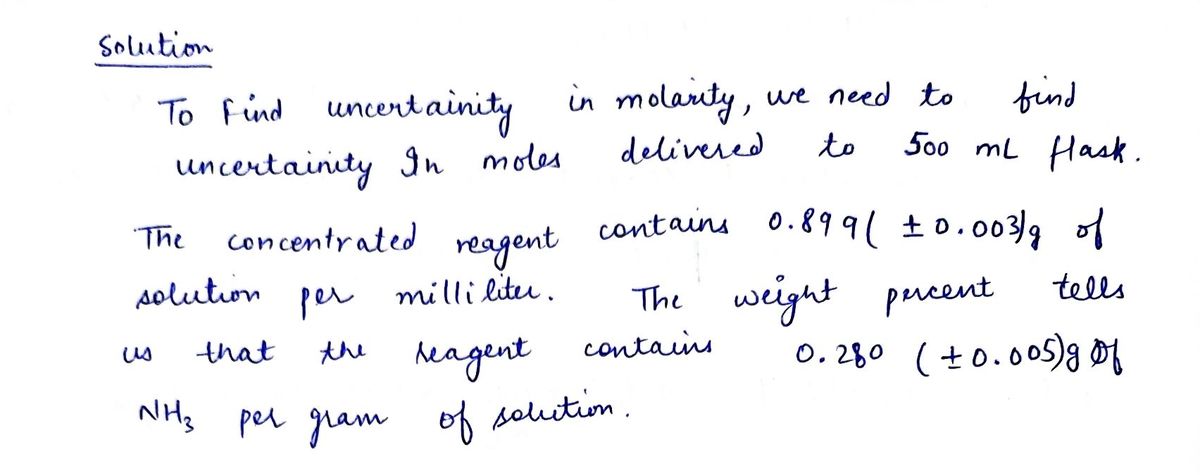 Solution
To Find uncertainity in molarity, we need to find
uncertainity In moles delivered to 500 mL flask.
The concentrated reagent contains 0.899( ±0.003)g of
solution per milliliter. The weight percent tells
us that the reagent contains 0.280 (±0.005)g Of
NH3 per gram of solution.